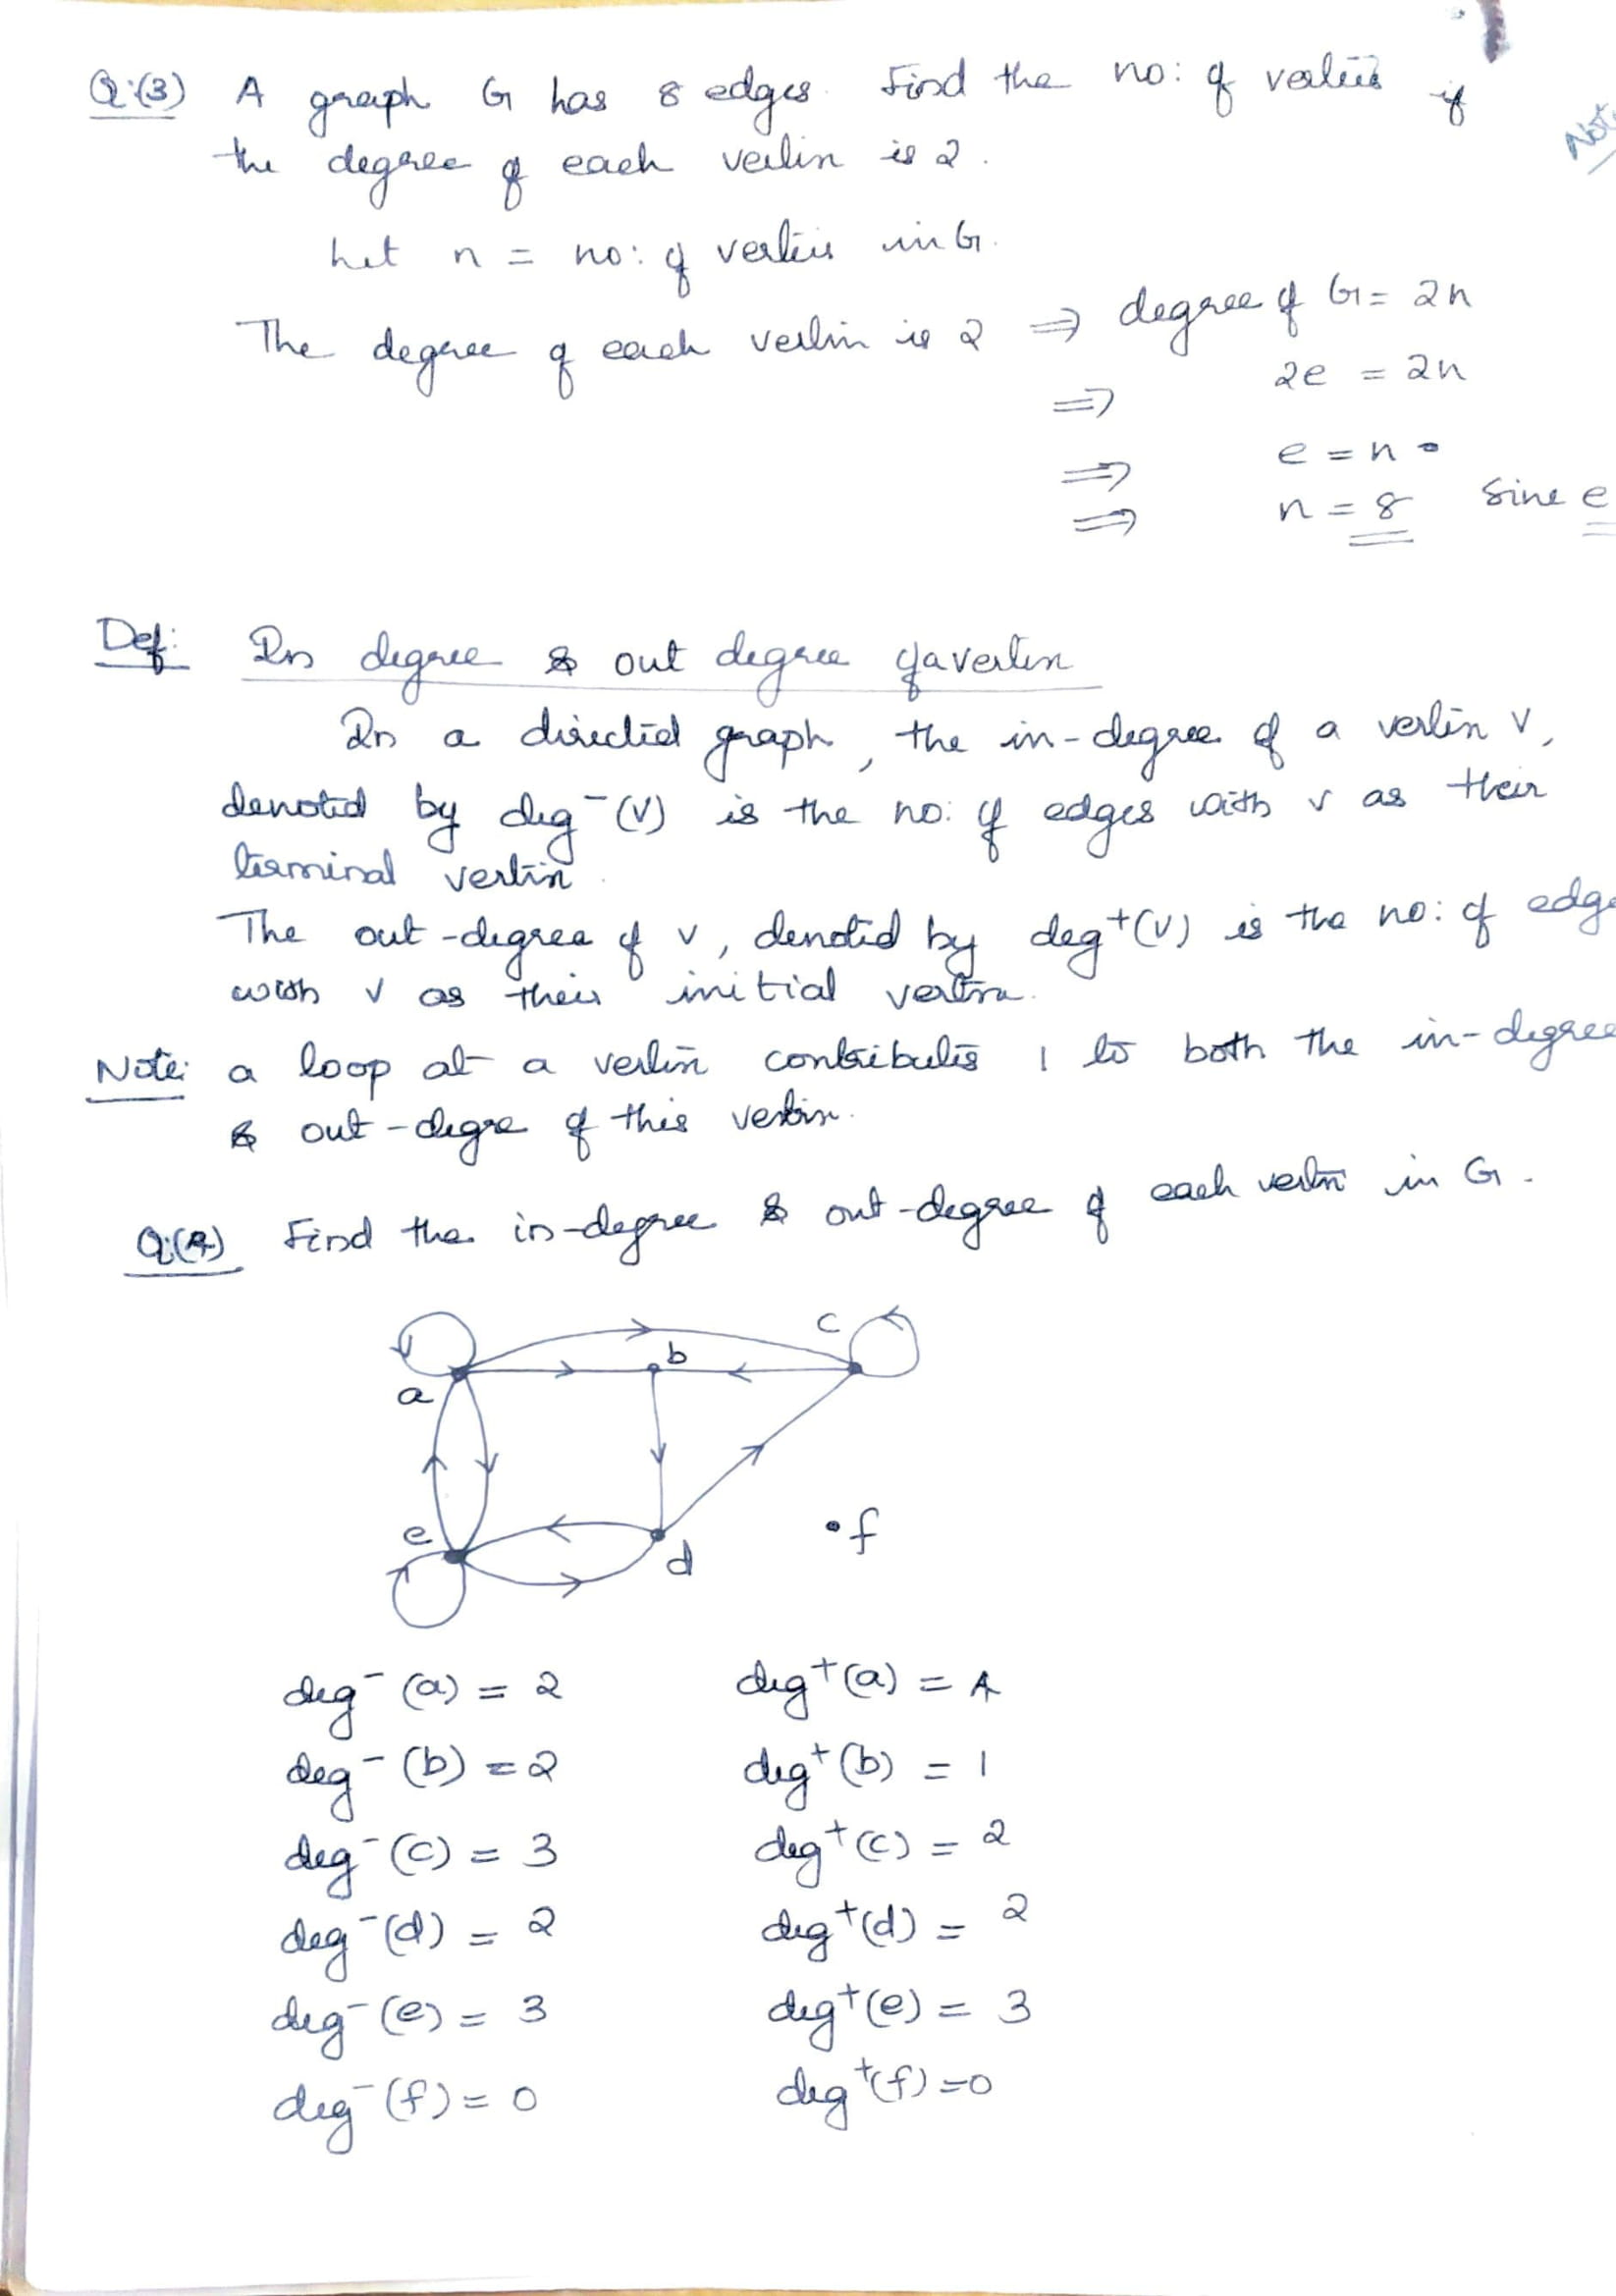 Q:(3) A graph G has 8 edges. Find the no: of vertices if
the degree of each vertex is 2.
Let n = no: of vertices in G.
The degree of each vertex is 2 ⇒ degree of G = 2n
⇒ 2e = 2n
⇒ e = n
⇒ n = 8 Sine e
Not
Def: In degree & out degree of a vertex
In a directed graph, the in-degree of a vertex v,
denoted by deg⁻(v) is the no: of edges with v as their
terminal vertex.
The out-degree of v, denoted by deg⁺(v) is the no: of edge
with v as their initial vertex.
Note: a loop at a vertex contributes 1 to both the in-degree
& out-degre of this vertex.
Q:(4) Find the in-degree & out-degree of each vertex in G.
c
b
a
e
f
d
deg⁻(a) = 2 deg⁺(a) = 4
deg⁻(b) = 2 deg⁺(b) = 1
deg⁻(c) = 3 deg⁺(c) = 2
deg⁻(d) = 2 deg⁺(d) = 2
deg⁻(e) = 3 deg⁺(e) = 3
deg⁻(f) = 0 deg⁺(f) = 0